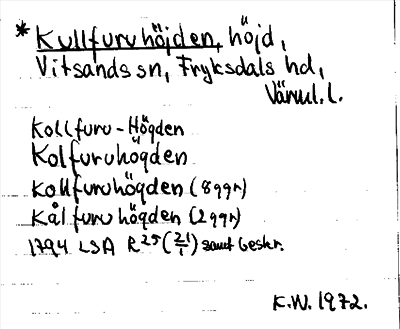 * Kullfuruhöjden, höjd,
Vitsands sn, Fryksdals hd,
Värml. l.
Kollfuru-Högden
Kolfuruhögden
Kollfuruhögden (8 ggr)
Kålfuruhögden (2 ggr)
1794 LSA R 25 (21/1) samt beskr.
K.W. 1972.